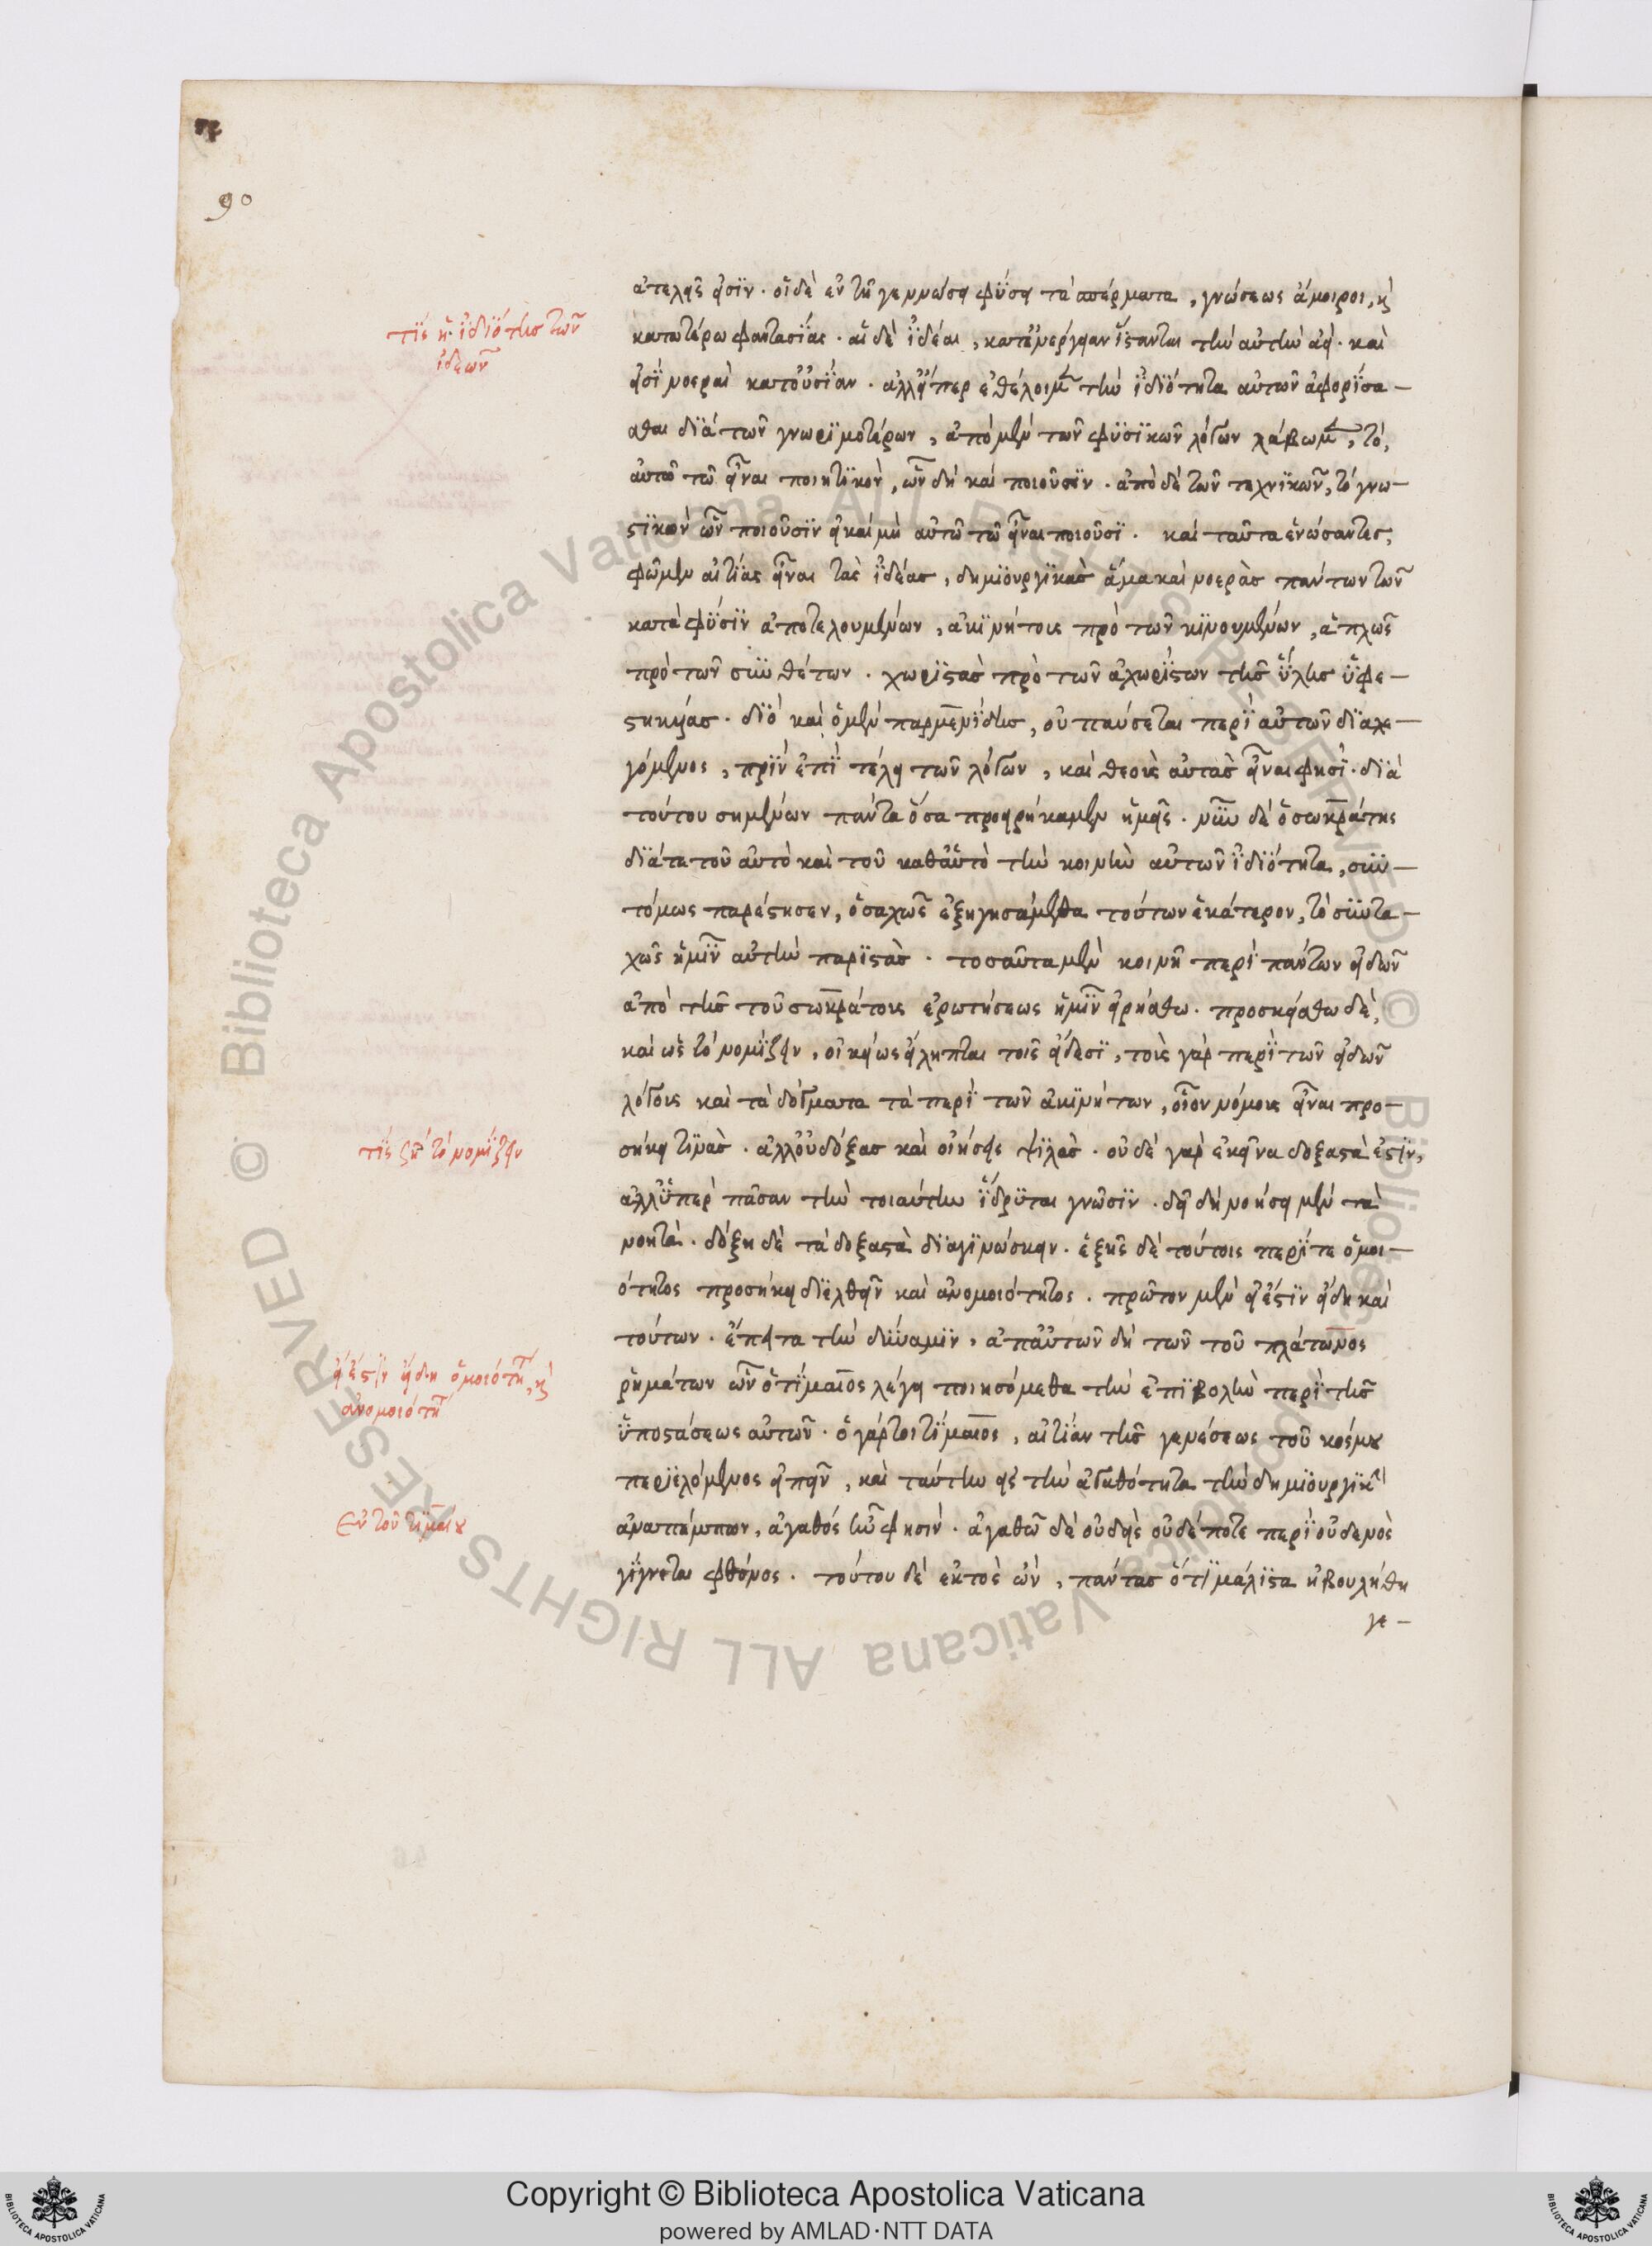 90
ἀτελεῖς εἰσὶν. οἱ δὲ ἐν τῇ γεννώσῃ φύσει τὰ σπέρματα, γνώσεως ἄμοιροι, καὶ
τίς ἡ ἰδιότης τῶν
ἰδεῶν
κατωτέρω φαντασίας. αἱ δὲ ἰδέαι, κατ' ἐνέργειαν ἵστανται τὴν αὐτὴν ἀεί. καὶ
εἰσὶ νοεραὶ κατ' οὐσίαν. ἀλλ' εἴπερ ἐθέλοιμεν τὴν ἰδιότητα αὐτῶν ἀφορίσα-
σθαι διὰ τῶν γνωριμοτέρων, ἀπὸ μὲν τῶν φυσικῶν λόγων λάβωμεν, τὸ,
αὐτῶ τῶ εἶναι ποιητικὸν, ὧν δὴ καὶ ποιοῦσιν. ἀπὸ δὲ τῶν τεχνικῶν, τὸ γνω-
στικὸν ὧν ποιοῦσιν εἰ καὶ μὴ αὐτῶ τῶ εἶναι ποιοῦσι. καὶ ταῦτα ἑνώσαντες,
φῶμεν αἰτίας εἶναι τὰς ἰδέας, δημιουργικὰς ἅμα καὶ νοερὰς πάντων τῶν
κατὰ φύσιν ἀποτελουμένων, ἀκινήτους πρὸ τῶν κινουμένων, ἁπλῶς
πρὸ τῶν συνθέτων. χωριστὰς πρὸ τῶν ἀχωρίστων τῆς ὕλης ὑφε-
στηκυίας. διὸ καὶ ὁ μὲν παρμενίδης, οὐ παύσεται περὶ αὐτῶν διαλε-
γόμενος, πρὶν ἐπὶ τέλει τῶν λόγων, καὶ θεοὺς αὐτὰς εἶναι φησί. διὰ
τούτου σημαίνων πάντα ὅσα προειρήκαμεν ἡμεῖς. νῦν δὲ ὁ σωκράτης
διά τε τοῦ αὐτὸ καὶ τοῦ καθ' αὑτὸ τὴν κοινὴν αὐτῶν ἰδιότητα, συν-
τόμως παρέστησεν, ὁσαχῶς ἐξηγησάμεθα τούτων ἑκάτερον, τοσαυτα-
χῶς ἡμῖν αὐτὴν παριστὰς. τοσαῦτα μὲν κοινῇ περὶ πάντων εἰδῶν
ἀπὸ τῆς τοῦ σωκράτους ἐρωτήσεως ἡμῖν εἰρήσθω. προσκείσθω δὲ,
καὶ ὡς τὸ νομίζειν, οἰκείως εἴληπται τοῖς εἴδεσι, τοὺς γὰρ περὶ τῶν εἰδῶν
λόγους καὶ τὰ δόγματα τὰ περὶ τῶν ἀκινήτων, οἷον νόμους εἶναι προ-
τίς ζητεῖ τὸ νομίζειν
σήκει τινὰς. ἀλλ' οὐ δόξας καὶ οἰήσεις ψιλὰς. οὐδὲ γὰρ ἐκεῖνα δοξαστὰ ἐστὶν,
ἀλλ' ὑπὲρ πᾶσαν τὴν τοιαύτην ἵδρυται γνῶσιν. δεῖ δὴ νοήσει μὲν τὰ
νοητὰ. δόξῃ δὲ τὰ δοξαστὰ διαγινώσκειν. ἑξῆς δὲ τούτοις περί τε ὁμοι-
ότητος προσήκει διελθεῖν καὶ ἀνομοιότητος. πρῶτον μὲν εἰ ἔστιν εἴδη καὶ
τούτων. ἔπειτα τὴν δύναμιν, ἀπ' αὐτῶν δὴ τῶν τοῦ πλάτωνος
εἰ ἔστιν εἴδη ὁμοιότητος, καὶ
ἀνομοιότητος
ῥημάτων ὧν ὁ τίμαιος λέγει ποιησόμεθα τὴν ἐπιβολὴν περὶ τῆς
ὑποστάσεως αὐτῶν. ὁ γάρ τοι τίμαιος, αἰτίαν τῆς γενέσεως τοῦ κόσμου
περιελόμενος εἰπεῖν, καὶ ταύτην εἰς τὴν ἀγαθότητα τὴν δημιουργικὴν
ἐν τοῦ τιμαίου
ἀναπέμπων, ἀγαθός ἦν φησὶν. ἀγαθῶ δὲ οὐδεὶς οὐδέποτε περὶ οὐδενὸς
γίγνεται φθόνος. τούτου δὲ ἐκτὸς ὢν, πάντας ὅτι μάλιστα ἠβουλήθη
γε-
© Biblioteca Apostolica Vaticana ALL RIGHTS RESERVED © Biblioteca Apostolica Vaticana ALL RIGHTS RESERVED
Copyright © Biblioteca Apostolica Vaticana
powered by AMLAD・NTT DATA